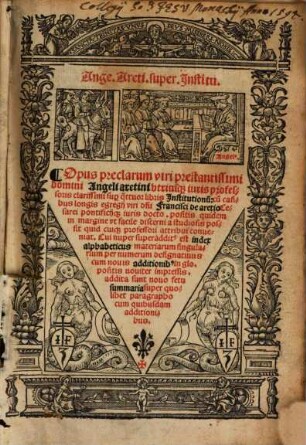 Ange. Areti. super. Institu.
Opus preclarum viri prestantissimi
domini Angeli aretini vtriusq; iuris profes
soris clarissimi sup q̃ttuor libros Institutionũ: cũ casi
bus longis egregij viri dñi Francisci de aretio: Ce
sarei pontificijq; iuris docto. positis quidem
in margine vt facile discerni a studiosis pos
sit quid cuiq; professori attribui conue
niat. Cui nuper superaddit⁹ est index
alphabeticus materiarum singula
rium per numerum designatiuus
cum nouis additionib⁹ in glo.
positis nouiter impressis.
addita sunt nouo setu
summaria super quo
libet paragrapho
cum quibusdam
additioni
bus.